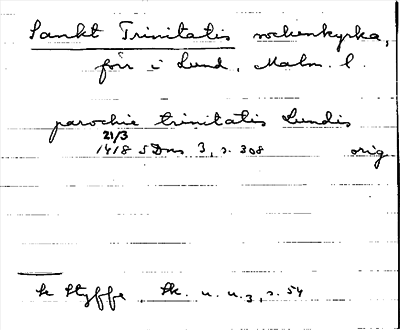 Sankt Trinitatis sockenkyrka,
förr i Lund, Malm. l.
parochie trinitatis Lundis
21/3
1418 SDns 3, s. 308 orig.
Styffe, Sk. u. u.3, s. 54